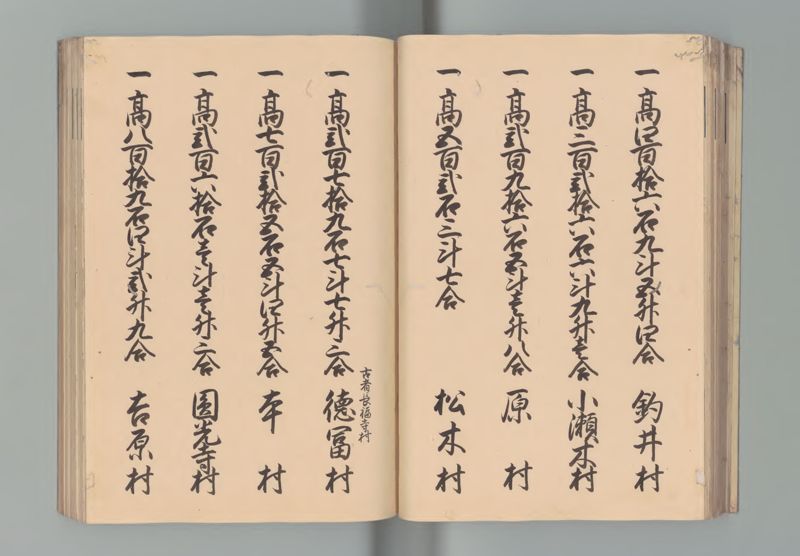 一 高四百拾六石九斗五升四合 釣井村
一 高三百弐拾六石六斗九升壱合 小瀬木村
一 高弐百九拾六石五斗壱升八合 原村
一 高五百弐石三斗七合 松木村
一 高弐百七拾九石七斗七升二合 徳冨村
古者長福寺村
一 高七百弐拾五石五斗四升五合 本村
一 高弐百六拾石壱斗壱升二合 圓光寺村
一 高八百拾九石四斗弐升九合 吉原村